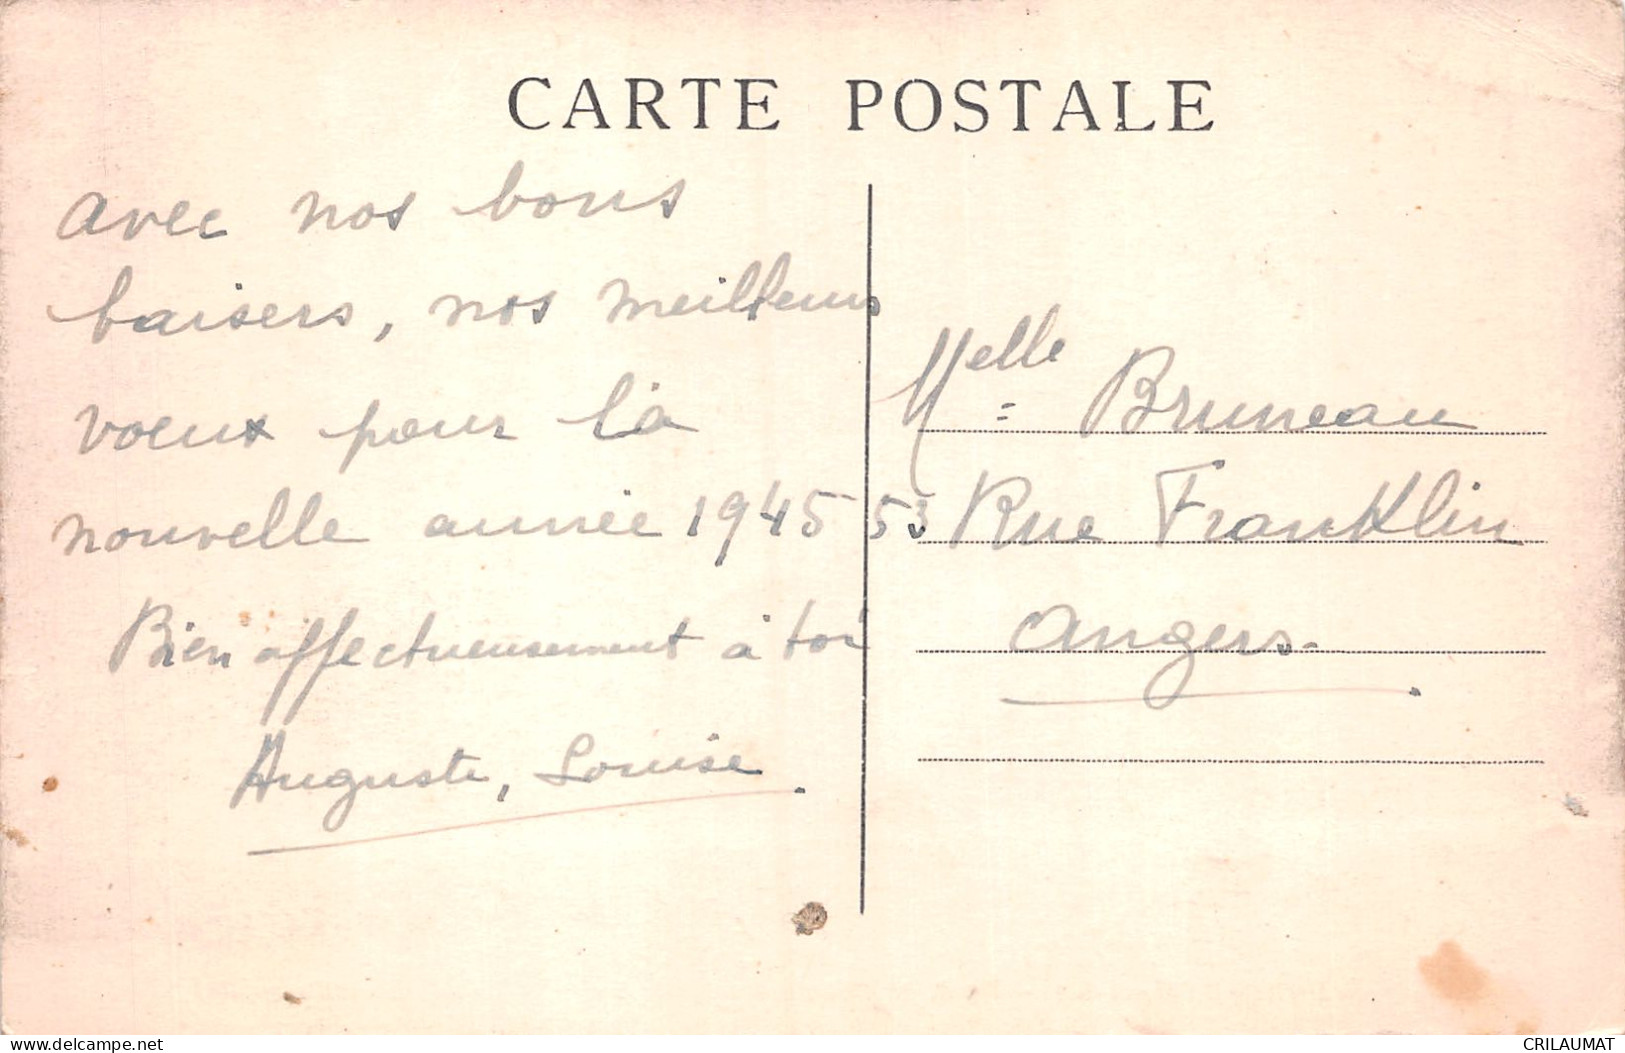 CARTE POSTALE
avec nos bons
baisers, nos meilleurs
voeux pour la
nouvelle année 1945
Bien affectueusement à toi
Auguste, Louise.
Melle Bruneau
53 Rue Franklin
Angers.
www.delcampe.net
CRILAUMAT